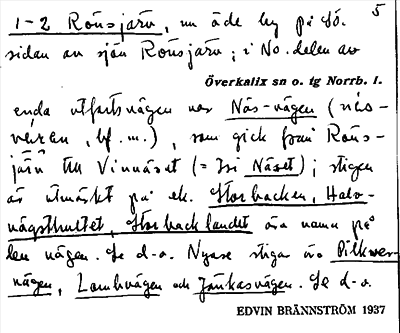 1-2 Rönsjärv, nu öde by på sö. 5
sidan av sjön Rönsjärv; i No. delen av
Överkalix sn o. tg Norrb. l.
enda utfartsvägen var Näs-vägen (näs-
, bf. m.), som gick från Röns-
järv till Vinnäset (= Näset); stigen
är utmärkt på ek. Storbacken, Halv-
vägsthultet, Storbacklandet äro namn på
den vägen. Se d.o. Nyare stigar äro
vägen, Lambvägen och Jönkasvägen. Se d.o.
EDVIN BRÄNNSTRÖM 1937